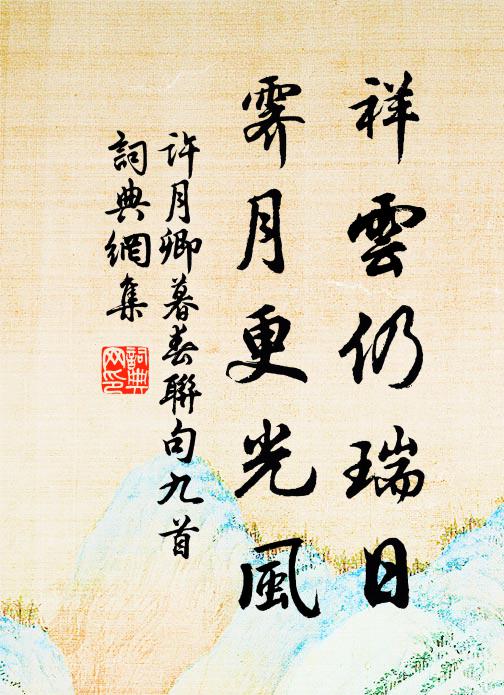 祥雲仍瑞日
霽月更光風
許月卿暮春聯句九首
詞典網集
詞典網印